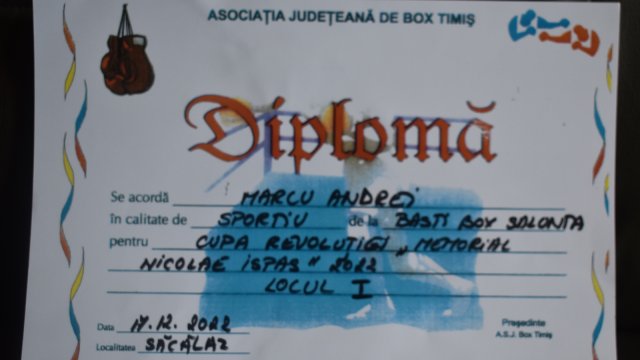 ASOCIAȚIA JUDEȚEANĂ DE BOX TIMIȘ
Diplomă
Se acordă MARCU ANDREI
în calitate de SPORTIV de la BASTI BOX SALONTA
pentru CUPA REVOLUȚIEI „MEMORIAL
NICOLAE ISPAS" 2022
LOCUL I
Data 17.12.2022
Localitatea SĂCĂLAZ
Președinte
A.S.J. Box Timiș